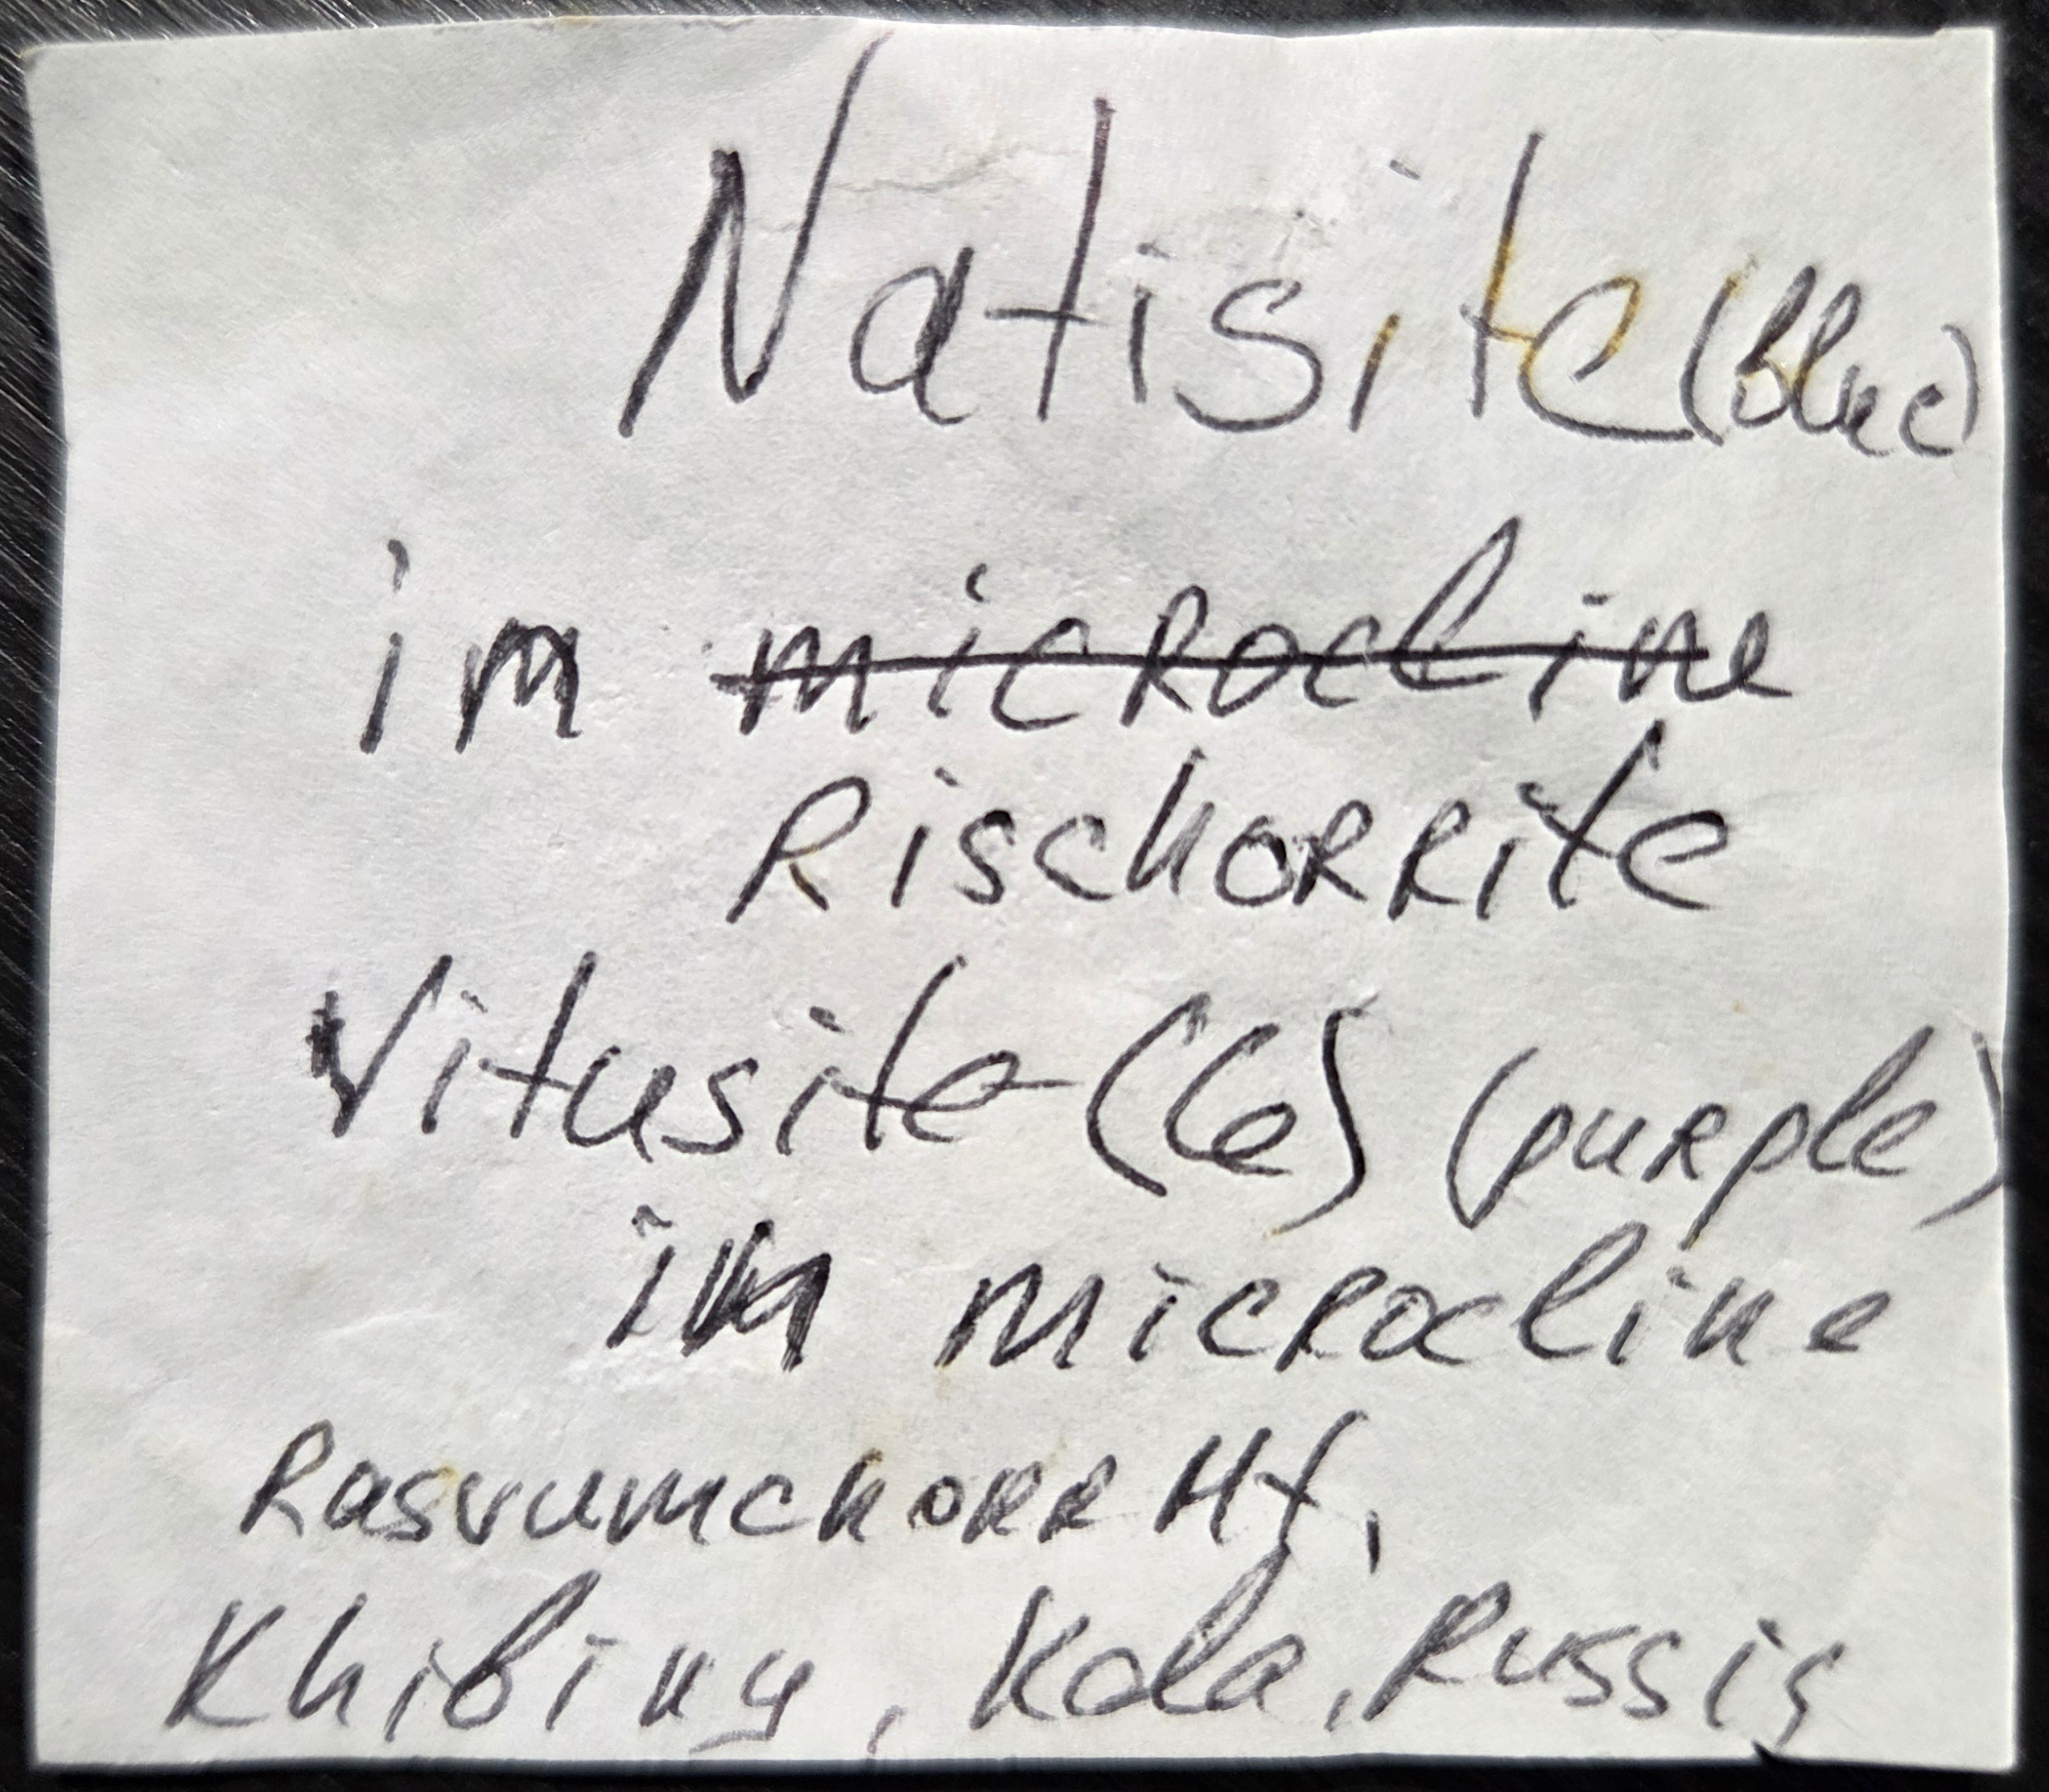 Natisite (blue)
in ~~microcline~~
Rischorrite
Vitusite (Ce) (purple)
in microcline
Rasvumchorr Mt,
Khibiny, Kola, Russia